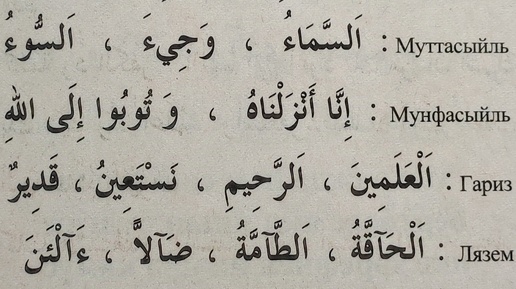 Муттасыйль : اَلسَّمَاءُ ، وَجِيءَ ، اَلسُّوءُ
Мунфасыйль : إِنَّا أَنْزَلْنَاهُ ، وَ تُوبُوا إِلَى اللهِ
Гариз : اَلْعَلَمِينَ ، اَلرَّحِيمِ ، نَسْتَعِينُ ، قَدِيرٌ
Лязем : اَلْحَآقَّةُ ، اَلطَّآمَّةُ ، ضَآلاًّ ، ءَآلْئَنَ